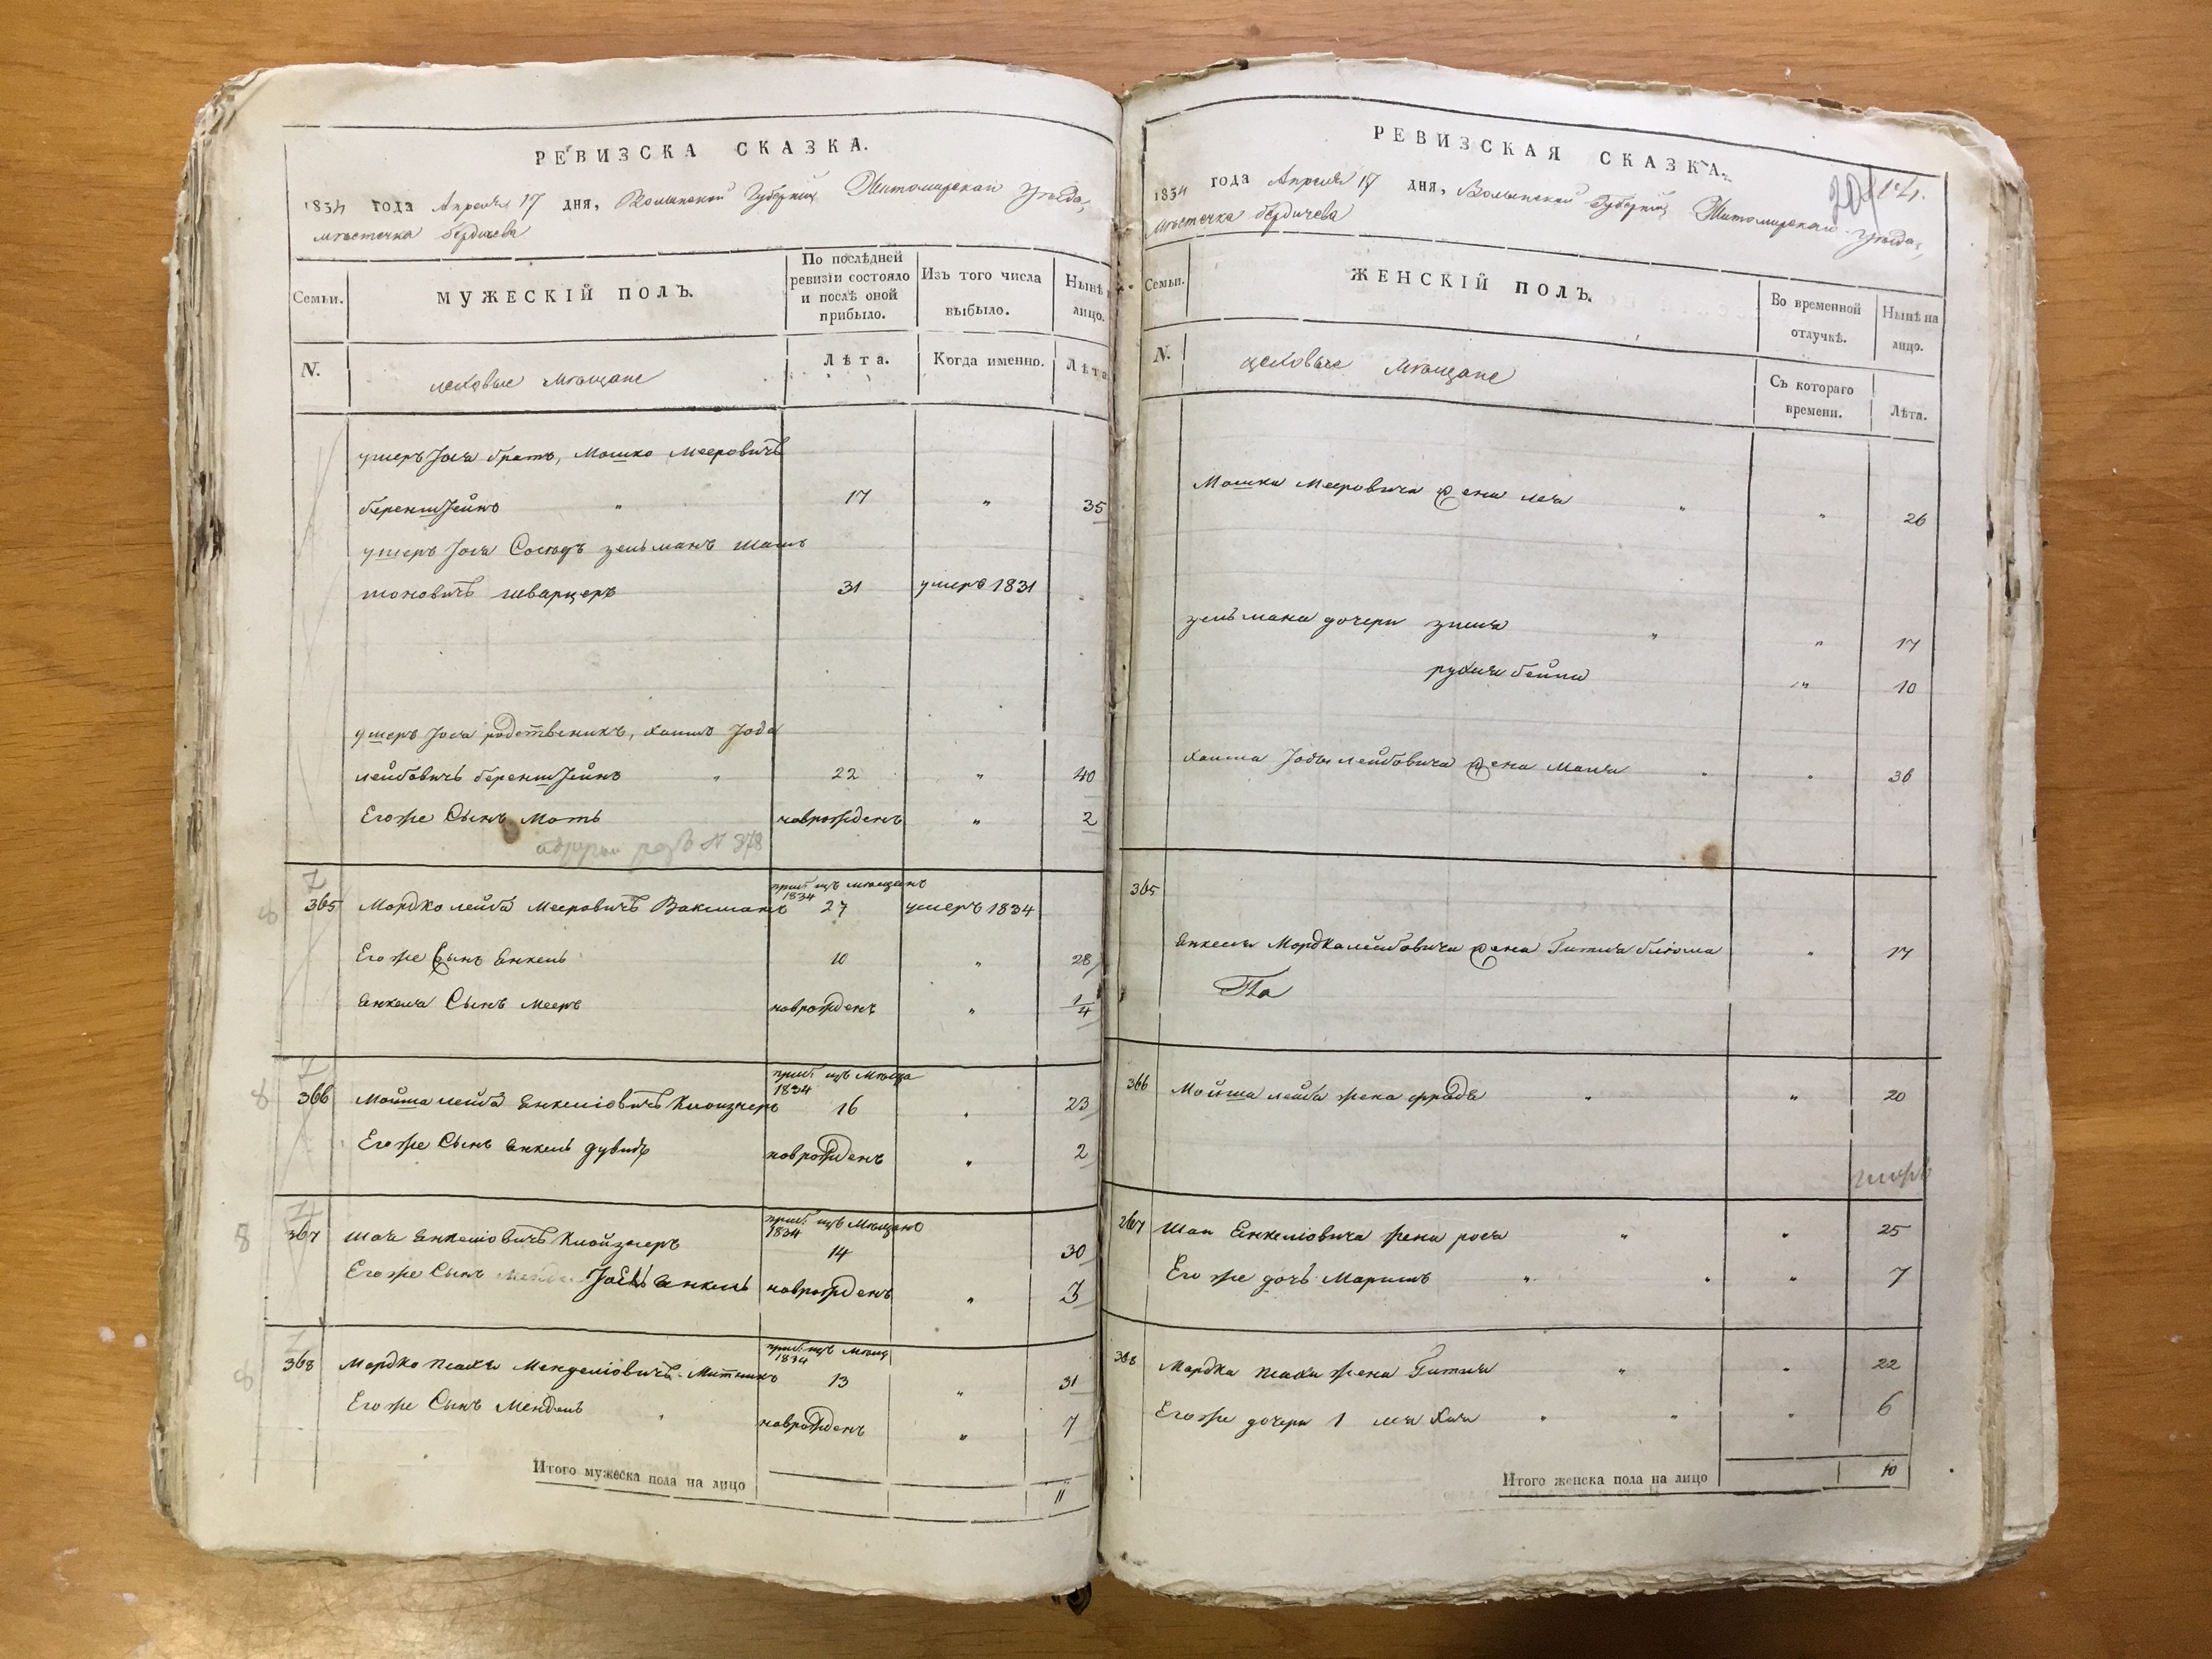 РЕВИЗСКА СКАЗКА.
1834 года Апреля 17 дня, Волынской Губернии Житомирскаи уезда,
мѣстечка бердичева
Семьи.
МУЖЕСКІЙ ПОЛЪ.
По послѣдней
ревизіи состояло
и послѣ оной
прибыло.
Изъ того числа
выбыло.
Нынѣ
лицо.
N.
цеховые мѣщане
Лѣта.
Когда именно.
Лѣта
умеръ Іося братъ, Мошко Мееровичъ
беренштейнъ " 17 " 35
умеръ Іося Сосѣдъ зельманъ
шварцеръ 31 умеръ 1831
умеръ Іося родственикъ, хаимъ Іода
лейбовичъ беренштейнъ " 22 " 40
Егоже Сынъ Моть новрожденъ " 2
N 378
365 Мордко лейба Мееровичъ Ваксманъ
1834
27 умеръ 1834
Егоже Сынъ Енкель 10 " 28
Енкеля Сынъ Мееръ новрожденъ " 1/4
366 Мойша лейба Енкеліовичъ
1834
16 " 23
Егоже Сынъ Енкель дувидъ новрожденъ " 2
8 367 Шая Енкеліовичъ
1834
14 30
Егоже Сынъ Іосъ Енкель новрожденъ " 3
8 368 Мордко песахъ Менделіовичъ Митникъ
1834
13 " 31
Егоже Сынъ Мендель " новрожденъ " 7
Итого мужеска пола на лицо 11
РЕВИЗСКАЯ СКАЗКА.
1834 года Апреля 17 дня, Волынской Губернии Житомирскаи уезда,
Мѣстечка бердичева
Семьи.
ЖЕНСКІЙ ПОЛЪ.
Во временной
отлучкѣ.
Нынѣ на
лицо.
N.
цеховые мѣщане
Съ котораго
времени.
Лѣта.
Мошки Мееровича жена лея " " 26
зельмана дочери зися " " 17
рухля бейла " 10
хаима Іоды лейбовича жена Маля " " 36
365
Енкеля Мордкалейбовича жена Гитля блюма " 17
366 Мойша лейба жена фрада " " 20
367 Шаи Енкеліовича жена рося " " 25
Егоже дочь Маримъ " " " 7
368 Мордка песаха жена Гитля " " 22
Егоже дочери 1 лея хая " " " 6
Итого женска пола на лицо 10